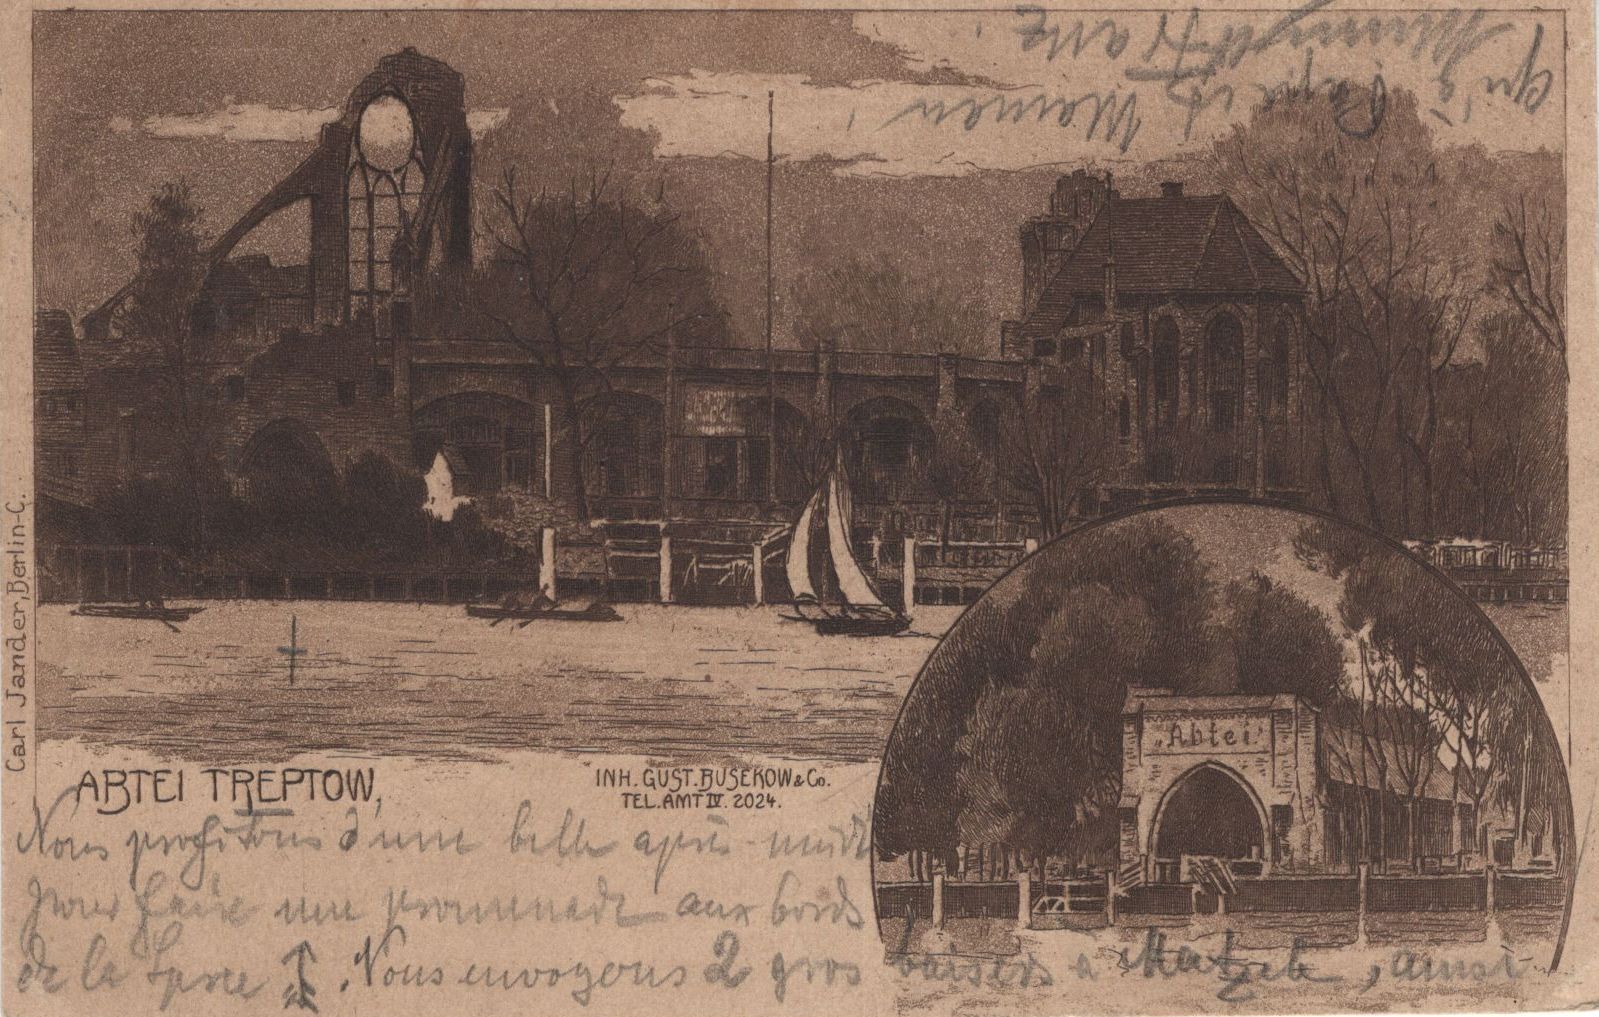 Carl Jander, Berlin-C.
„Abtei“
ABTEI TREPTOW,
INH. GUST. BUSEKOW & Co.
TEL. AMT IV. 2024.
Nous profitons d'une belle après-midi
pour faire une promenade aux bords
de la Spree. Nous envoyons 2 gros baisers a, ainsi
qu'à Papa et Maman!